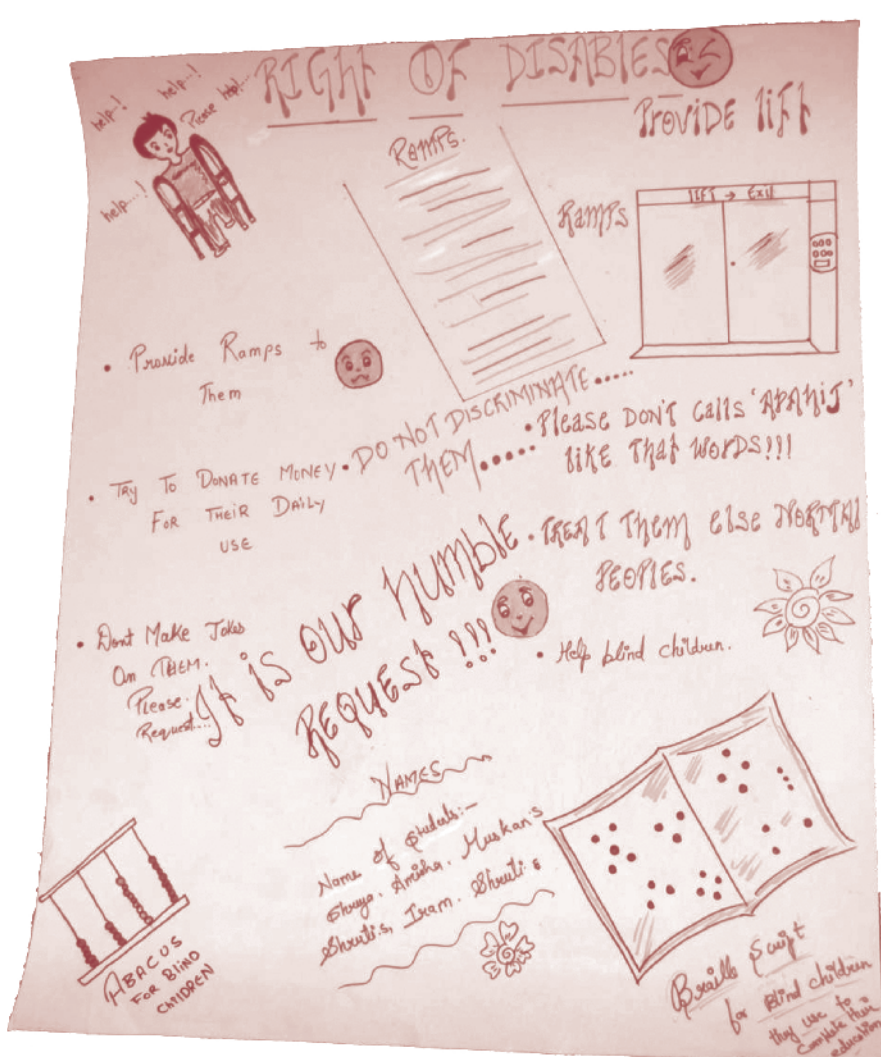 RIGHT OF DISABLES
help..!
help...!
Please help...
help...!
Ramps.
PROVIDE LIFT
RAMPS
LIFT → EXIT
• Provide Ramps to
Them
• DO NOT DISCRIMINATE.....
THEM.....
• Please DON'T calls 'APAHIJ'
like That words!!!
• TRY TO DONATE MONEY
FOR THEIR DAILY
USE
• TREAT Them else NORMAL
PEOPLES.
• Dont Make Jokes
On THEM.
Please.
Request....
It is OUR HUMBLE
REQUEST !!!
• Help blind children.
NAMES
Name of Students:-
Shruya, Amisha, Muskan's
Shruti.s, Iram. Shruti.E
ABACUS
FOR BLIND
CHILDREN
Braille Script
for Blind children
they use to
Complete their
education